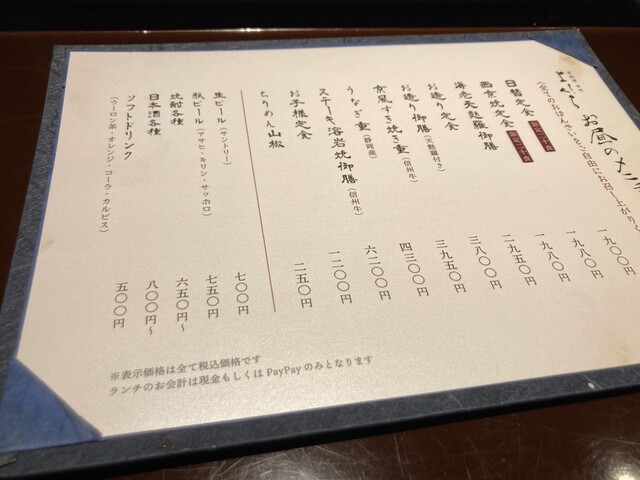 お昼のメニ
(全てのおばんざいをご自由にお召し上がりく
日替定食 限定二十食 一九〇〇円
西京焼定食 限定二十食 一九八〇円
海老天麩羅御膳 一九八〇円
お造り定食 二九五〇円
お造り御膳(天麩羅付き) 三八〇〇円
京風すき焼き重(信州牛) 三九五〇円
うなぎ重(静岡産) 四三〇〇円
ステーキ溶岩焼御膳(信州牛) 六二〇〇円
お子様定食 一二〇〇円
ちりめん山椒 二五〇円
生ビール(サントリー) 七〇〇円
瓶ビール(アサヒ・キリン・サッポロ) 七五〇円
焼酎各種 六五〇円~
日本酒各種 八〇〇円~
ソフトドリンク 五〇〇円
(ウーロン茶・オレンジ・コーラ・カルピス)
※表示価格は全て税込価格です
ランチのお会計は現金もしくは PayPay のみとなります